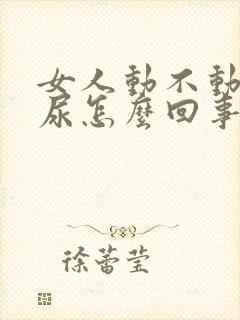 女人動不動
尿怎麼回事
徐蕾莹